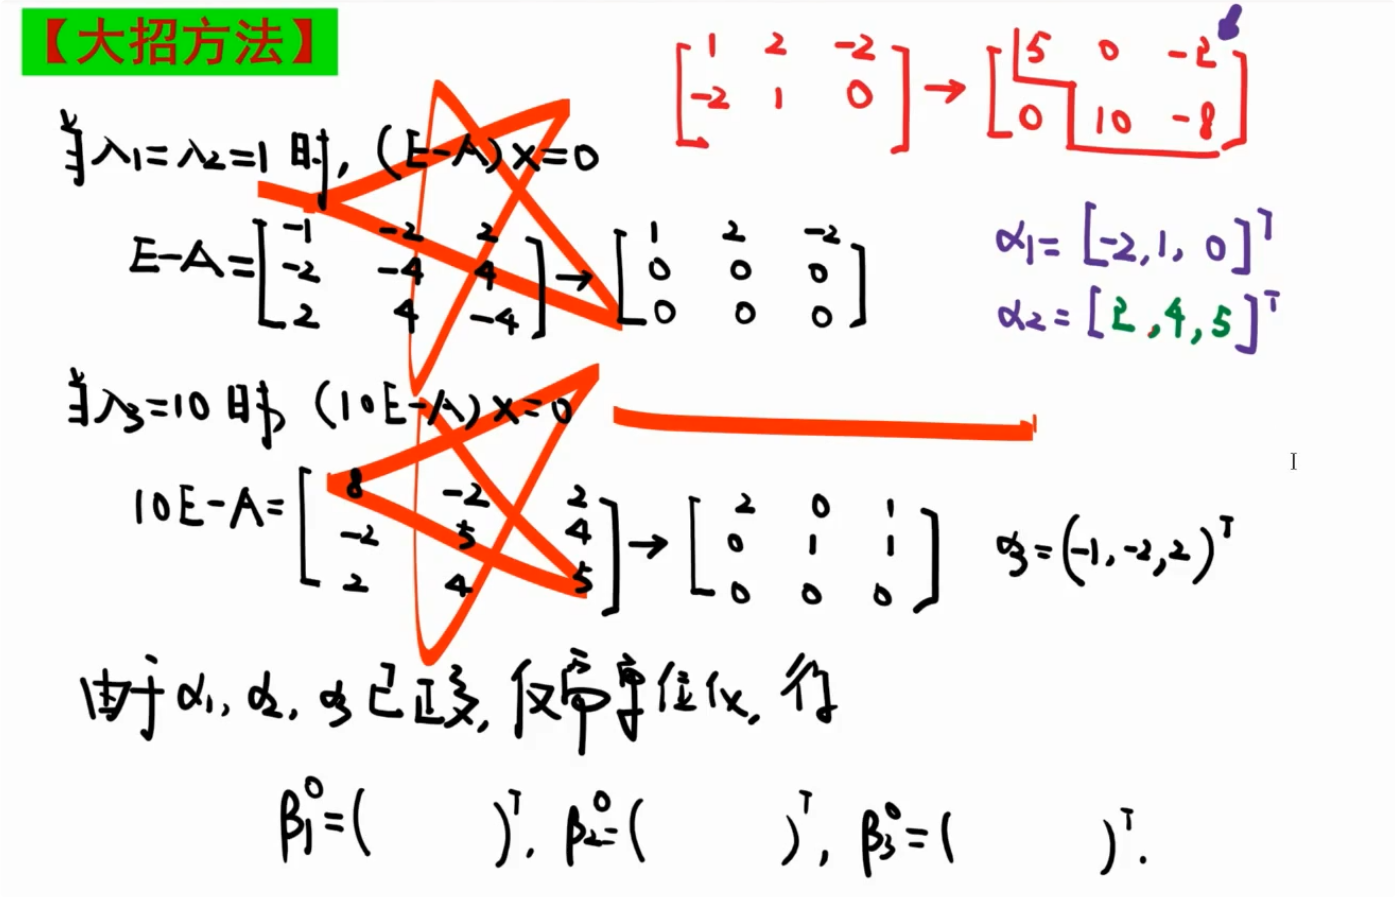 【大招方法】
[1 2 -2
-2 1 0] → [5 0 -2
0 10 -8]
当λ1=λ2=1时, (E-A)x=0
E-A=[-1 -2 2
-2 -4 4
2 4 -4] → [1 2 -2
0 0 0
0 0 0]
α1=[-2,1,0]ᵀ
α2=[2,4,5]ᵀ
当λ3=10时, (10E-A)x=0
10E-A=[8 -2 2
-2 5 4
2 4 5] → [2 0 1
0 1 1
0 0 0]
α3=(-1,-2,2)ᵀ
由于α1, α2, α3已正交, 仅需单位化, 得
β1⁰=( )ᵀ. β2⁰=( )ᵀ, β3⁰=( )ᵀ.